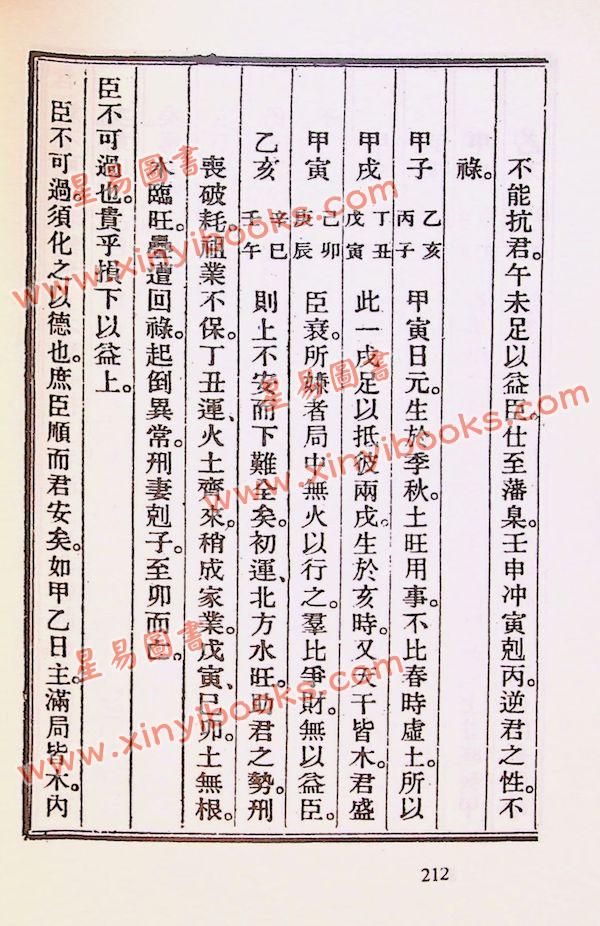 不能抗君。午未足以益臣。仕至藩臬。壬申冲寅剋丙。逆君之性。不
祿。
甲子 乙亥 丙子 甲寅日元。生於季秋。土旺用事。不比春時虛土。所以
甲戌 丁丑 戊寅 此一戌足以抵彼兩戌。生於亥時。又天干皆木。君盛
甲寅 己卯 庚辰 臣衰。所嫌者局中無火以行之。羣比爭財。無以益臣。
乙亥 辛巳 壬午 則上不安而下難全矣。初運、北方水旺。助君之勢。刑
喪破耗。祖業不保。丁丑運、火土齊來。稍成家業。戊寅、己卯。土無根。
木臨旺。疊遭回祿。起倒異常。刑妻剋子。至卯而亡。
臣不可過也。貴乎損下以益上。
臣不可過。須化之以德也。庶臣順而君安矣。如甲乙日主。滿局皆木。內
212
星易圖書
www.xinyibooks.com
星易圖書
www.xinyibooks.com
星易圖書
www.xinyibooks.com